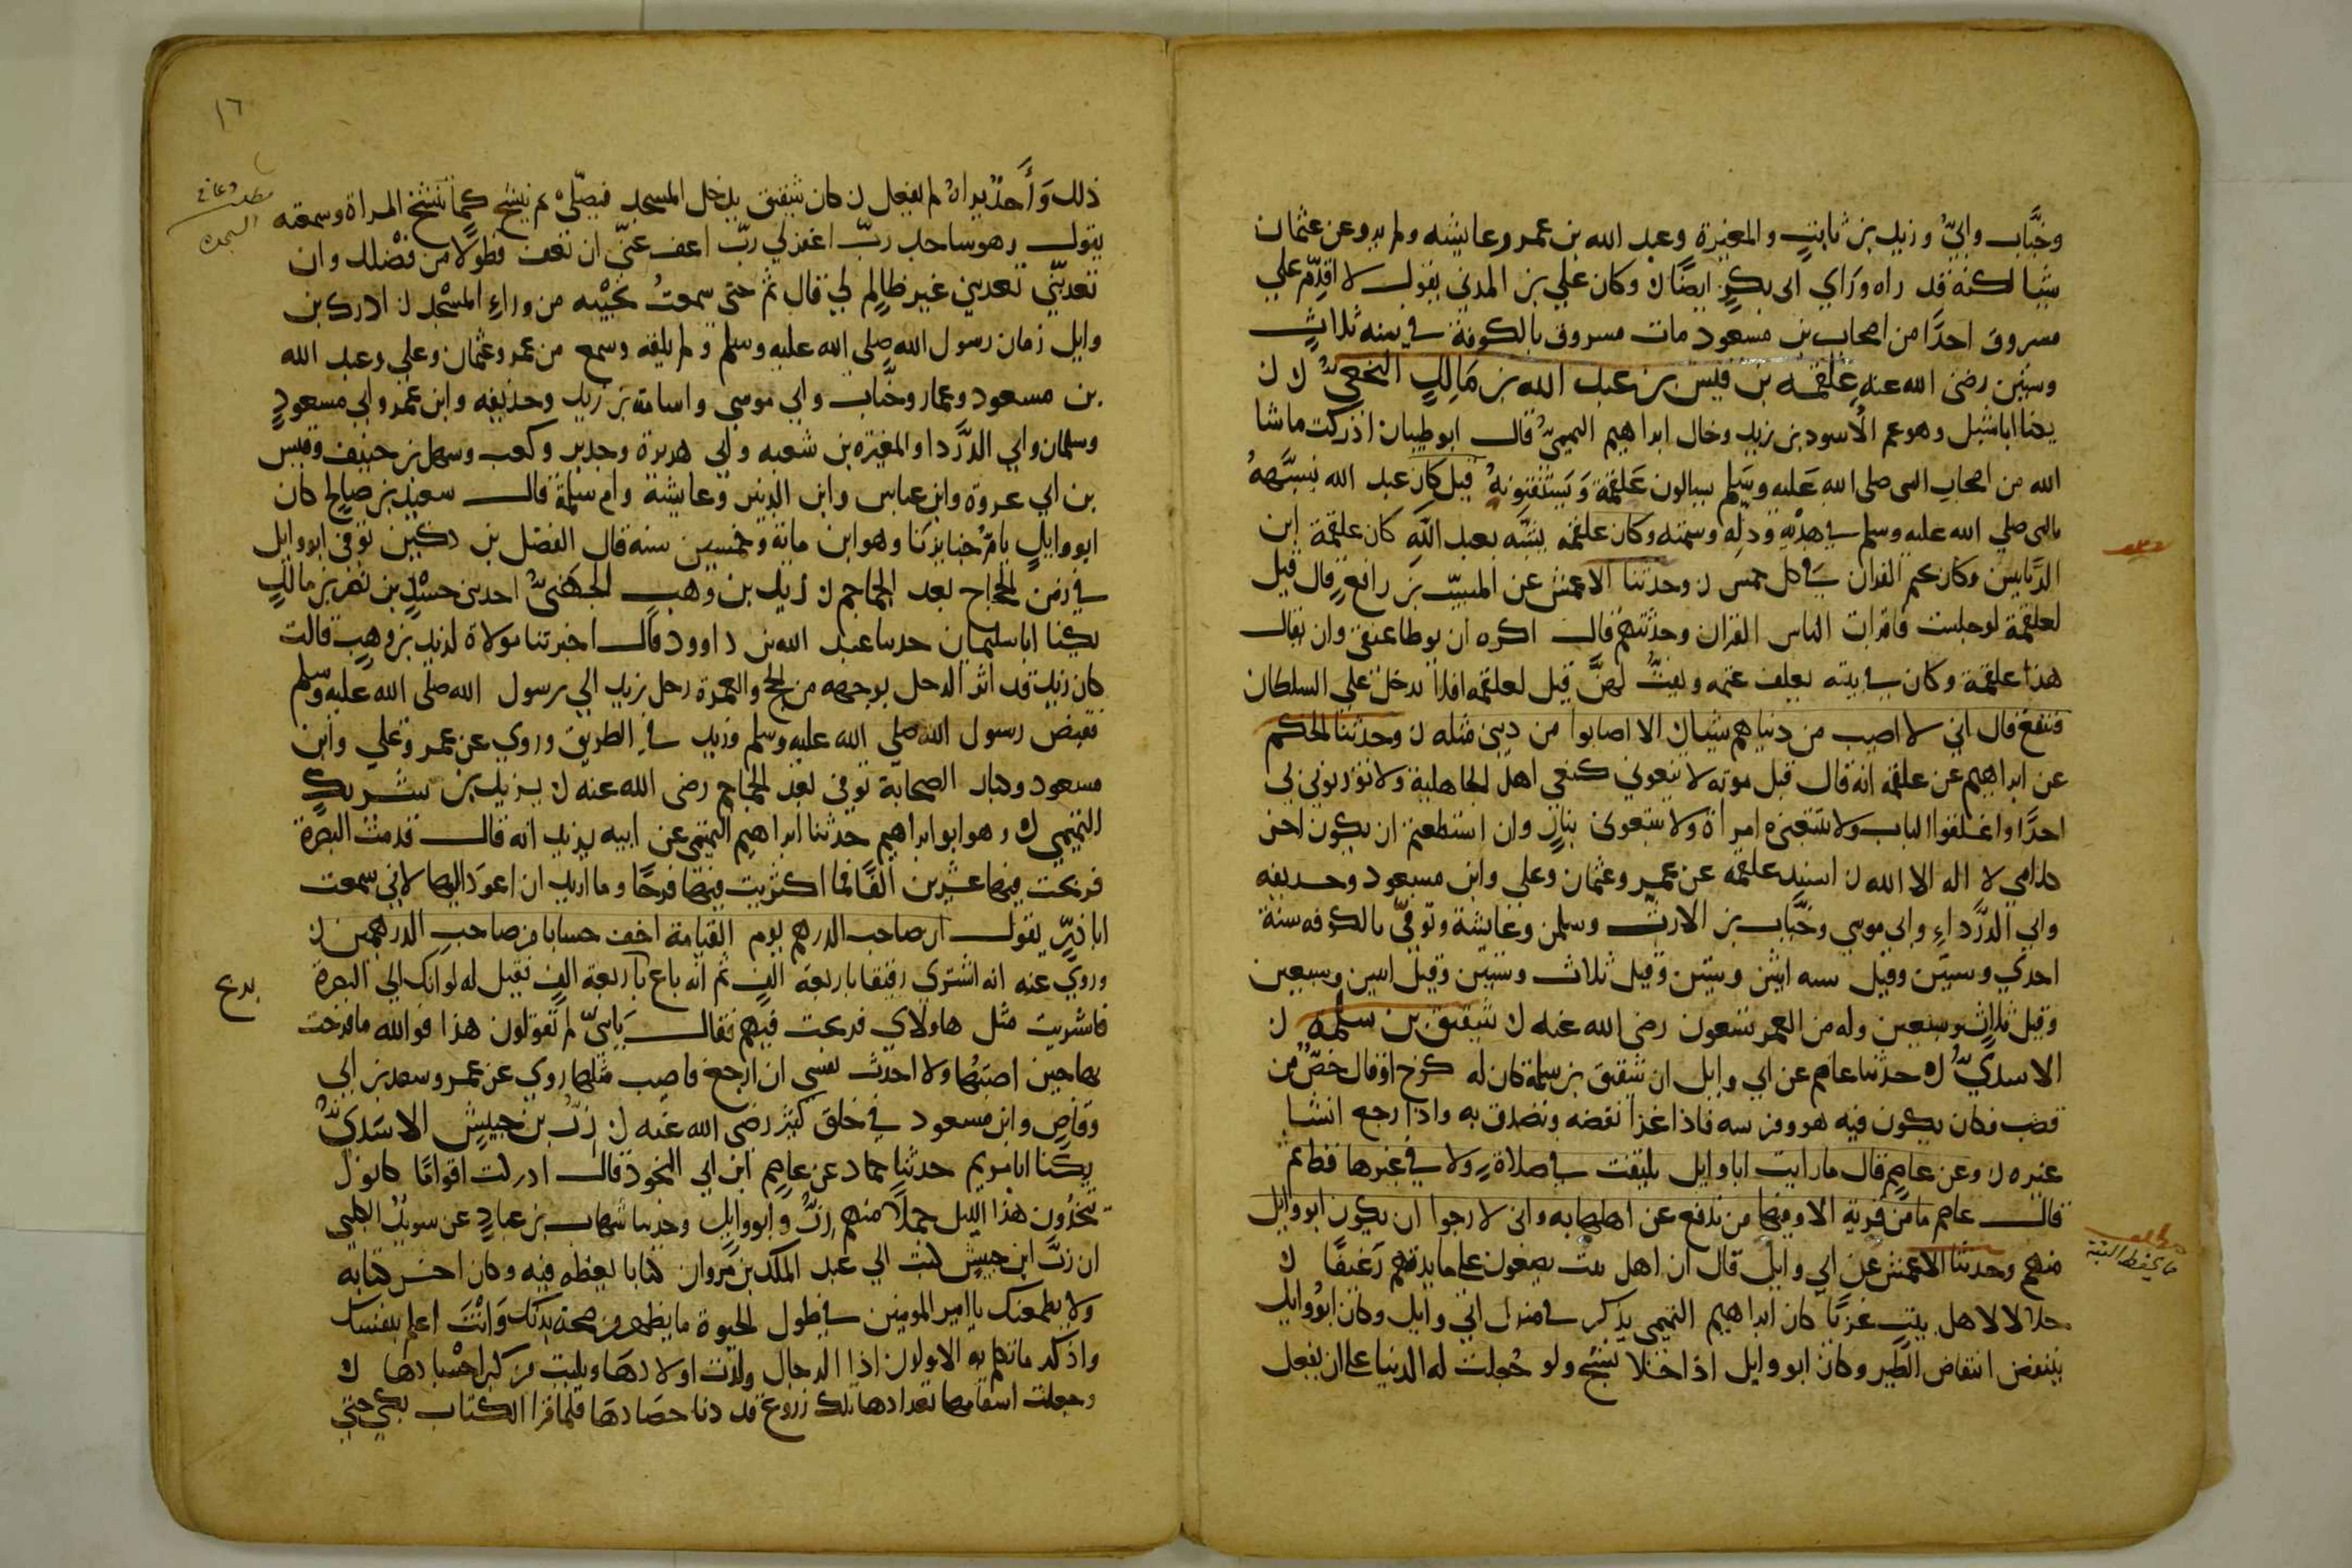 وخبَّاب وابيّ وزيد بن ثابتٍ والمغيرة وعبد الله بن عمرو وعايشه ولم يرو عن عثمان
شيا لكنه قد راه وراي ابي بكرٍ ايضًا ن وكان علي بن المديني يقول لا اقدّم علي
مسروق احدًا من اصحاب بن مسعود مات مسروق بالكوفة في سنه ثلاثٍ
وستين رضى الله عنه علقمه بن قيس بن عبد الله بن مَالِكٍ النخعيّ ن
يكنا اباشبل وهو عم الأسود بن يزيد وخال ابراهيم التيميّ قال ابو ظبيان ادركت ماشا
الله من اصحاب النبي صلى الله عَليه وسَلم يسالون عَلقمَة وَيَستفتونهُ قيل كان عبد الله يشبَّههُ
بالنبى صلي الله عليه وسلم في هديه ودلّه وسمته وكان علقمه يشبّه بعبد اللَّه كان علقمة ابن
الرَّبانيين وكان يختم القران في كل خمس ن وحدثنا الاعمش عن المسيّب بن رافعٍ قال قيل
لعلقمة لو جلست فاقرات الناس القران وحدثتهم قال اكره ان يوطا عقبي وان يقال
هذا علقمة وكان في بيته يعلف غنمه ويفتّ لهنَّ قيل لعلقمه افلا تدخل علي السلطان
فتنفع قال اني لا اصيب من دنياهم شيان الا اصابوا من ديني مثله ن وحدثنا الحكم
عن ابراهيم عن علقمه انه قال قبل موته لا تنعوني كنعي اهل الجاهلية ولا تؤذنوني بي
احدًا واغلقوا الباب ولا تتبعني امراة ولا تتبعوني بنارٍ وان استطعتم ان يكون اخر
كلامي لا اله الا الله ن اسند علقمه عن عمر وعثمان وعلي وابن مسعود وحذيفه
وابي الدَّرداءِ وابي موسي وخبَّاب بن الارتّ وسلمن وعايشة وتوفيّ بالكوفه سنة
احدي وستين وقيل سنه اثنين وستين وقيل ثلاث وستين وقيل اثنين وسبعين
وقيل ثلاثٍ وسبعين وله من العمر تسعون رضى الله عنه ن شقيق بن سلمه ن
الاسديّ ن حدثنا عاصم عن ابي وايل ان شقيق بن سلمة كان له كوخ او قال خصٌّ من
قصب فكان يكون فيه هو وفرسه فاذا غزا نقضه وتصدق به واذا رجع انشا
غيره ن وعن عاصم قال ما رايت ابا وايل يلتفت في صلاةٍ ولا في غيرها
قال عاصم ما من قرية الا وفيها من يدفع عن اهلها به واني لارجوا ان يكون ابو وايل
منهم وحدثنا الاعمش عن ابي وايل قال ان اهل بيت يضعون على مايدتهم رَغيفًا ن
حلالا لاهل بيتٍ غربًا كان ابراهيم التيمي يذكر في منزل ابي وايل وكان ابو وايل
ينتفض انتفاض الطير وكان ابو وايل اذا خلا ينشج ولو جُعِلت له الدنيا على ان يفعل
مطلب
ما يحفظ القرية
١٦
ذلك وَأَحدٌ يراهُ لم يفعل ن كان شقيق يدخل المسجد فيصلّى ثم ينشج كما تنشج المراة وسمعته
يقول وهو ساجد ربّ اغفر لي ربّ اعف عنّي ان تعف فطولا من فضلك وان
تعذبنّي تعذبني غير ظالِمٍ لي قال ثم حتى سمعتُ نحيبه من وراءِ المسْجد ن ادرك بن
وايل زمان رسول الله صلى الله عليه وسلم ولم يلقه وسمع من عمر وعثمان وعلي وعبد الله
بن مسعود وعمار وخبَّاب وابي موسي واسامة بن زيد وحذيفه وابن عمر وابي مسعودٍ
وسلمان وابي الدَّردا والمغيرة بن شعبه وابي هريرة وجرير وكعب وسهل بن حنيف وقيس
بن ابي عروة وابن عباس وابن الزبير وعايشة وام سلمة قال سعيد بن صالح كان
ابو وايل يامّ جنايزنا وهو ابن ماية وخمسين سنه قال الفضل بن دكين توفي ابو وايل
في زمن الحجاج بعد الجماجم ن زيد بن وهبٍ الجهنيّ احد بني حسْلِ بن نصر بن مالكٍ
يكنا ابا سليمان حدثنا عبد الله بن داوود قال اخبرتنا مولاة لزيد بن وهب قالت
كان زيد قد اثر الرحل بوجهه من الحج والعمرة رحل زيد الي رسول الله صلى الله عليه وسلم
فقبض رسول الله صلي الله عليه وسلم وزيد في الطريق وروي عن عمر وعلي وابن
مسعود وكبار الصحابة توفي بعد الجماجم رضى الله عنه ن يزيد بن شريكٍ
التيمي ن وهو ابو ابراهيم حدثنا ابراهيم التيمي عن ابيه يزيد انه قال قدمت البصرة
فربحت فيها عشرين الفًا فما اكترثت فيها فرحًا وما اريد ان اعوَد اليها لاني سمعت
اباذرٍّ يقول ان صاحب الدرهم يوم القيامة اخف حسابا من صاحب الدرهمين ن
وروي عنه انه اشتري رقيقا باربعة الف ثم انه باع باربعة الف فقيل له لو انك الي البصرة
فاشتريت مثل هاولاي فربحت فيهم فقال يا بنيّ لم تقولون هذا فوالله ما فرحت
بها حين اصبتها ولا احدث نفسي ان ارجع فاصيب مثلها روي عن عمر وسعد بن ابي
وقاص وابن مسعود في خلق كثير رضى الله عنه ن زرّ بن حبيش الاسَديّ
يكنا ابا مريم حدثنا حماد عن عاصم ابن ابي النجود قال ادركت اقوامًا كانوا
يتخذون هذا الليل جملاً منهم زرّ وابو وايل وحدثنا شهاب بن عباد عن سويد الكلبي
ان زرّ ابن حبيش كتب الي عبد الملك بن مَروان كتابا يعظه فيه وكان اخر كتابه
ولا يطمعنك يا امير المومنين في طول الحيوة ما يظهر من صحة بدنك وَانْتَ اعلم بنفسك
واذكر ما تكلم به الاولون اذا الرجال ولدت اولادها وبليت من كبر اجسادها ن
وجعلت اسقامها تعتادها تلك زروع قد دنا حصَادهَا فلما قرا الكتاب بكى حتي
مطلب دعا في
السجود